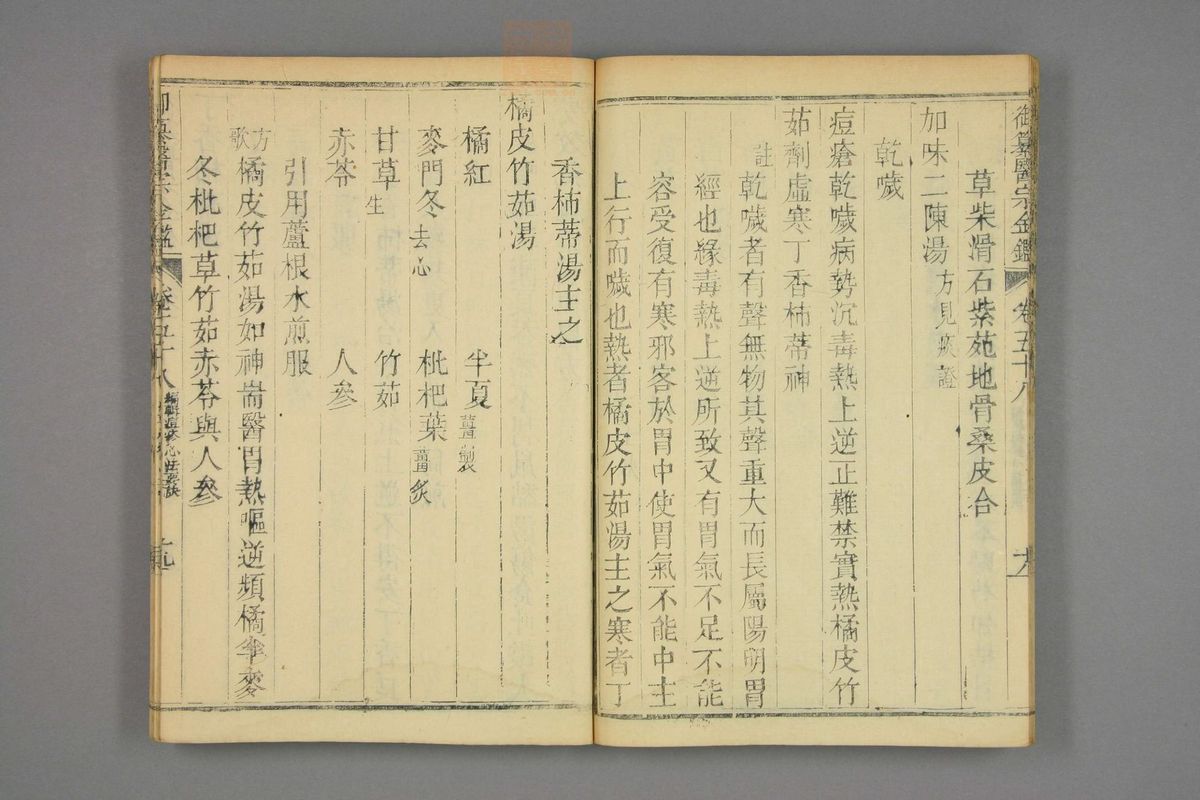 御纂醫宗金鑑 卷五十八
草柴滑石紫苑地骨桑皮合
加味二陳湯方見痰證
乾噦
痘瘡乾噦病勢沉毒熱上逆正難禁實熱橘皮竹
茹劑虛寒丁香柿蒂神
註乾噦者有聲無物其聲重大而長屬陽明胃
經也緣毒熱上逆所致又有胃氣不足不能
容受復有寒邪客於胃中使胃氣不能中主
上行而噦也熱者橘皮竹茹湯主之寒者丁
香柿蒂湯主之
橘皮竹茹湯
橘紅 半夏薑製
麥門冬去心 枇杷葉薑炙
甘草生 竹茹
赤苓 人參
引用蘆根水煎服
方歌橘皮竹茹湯如神耑醫胃熱嘔逆頻橘半麥
冬枇杷草竹茹赤苓與人參
卷五十八